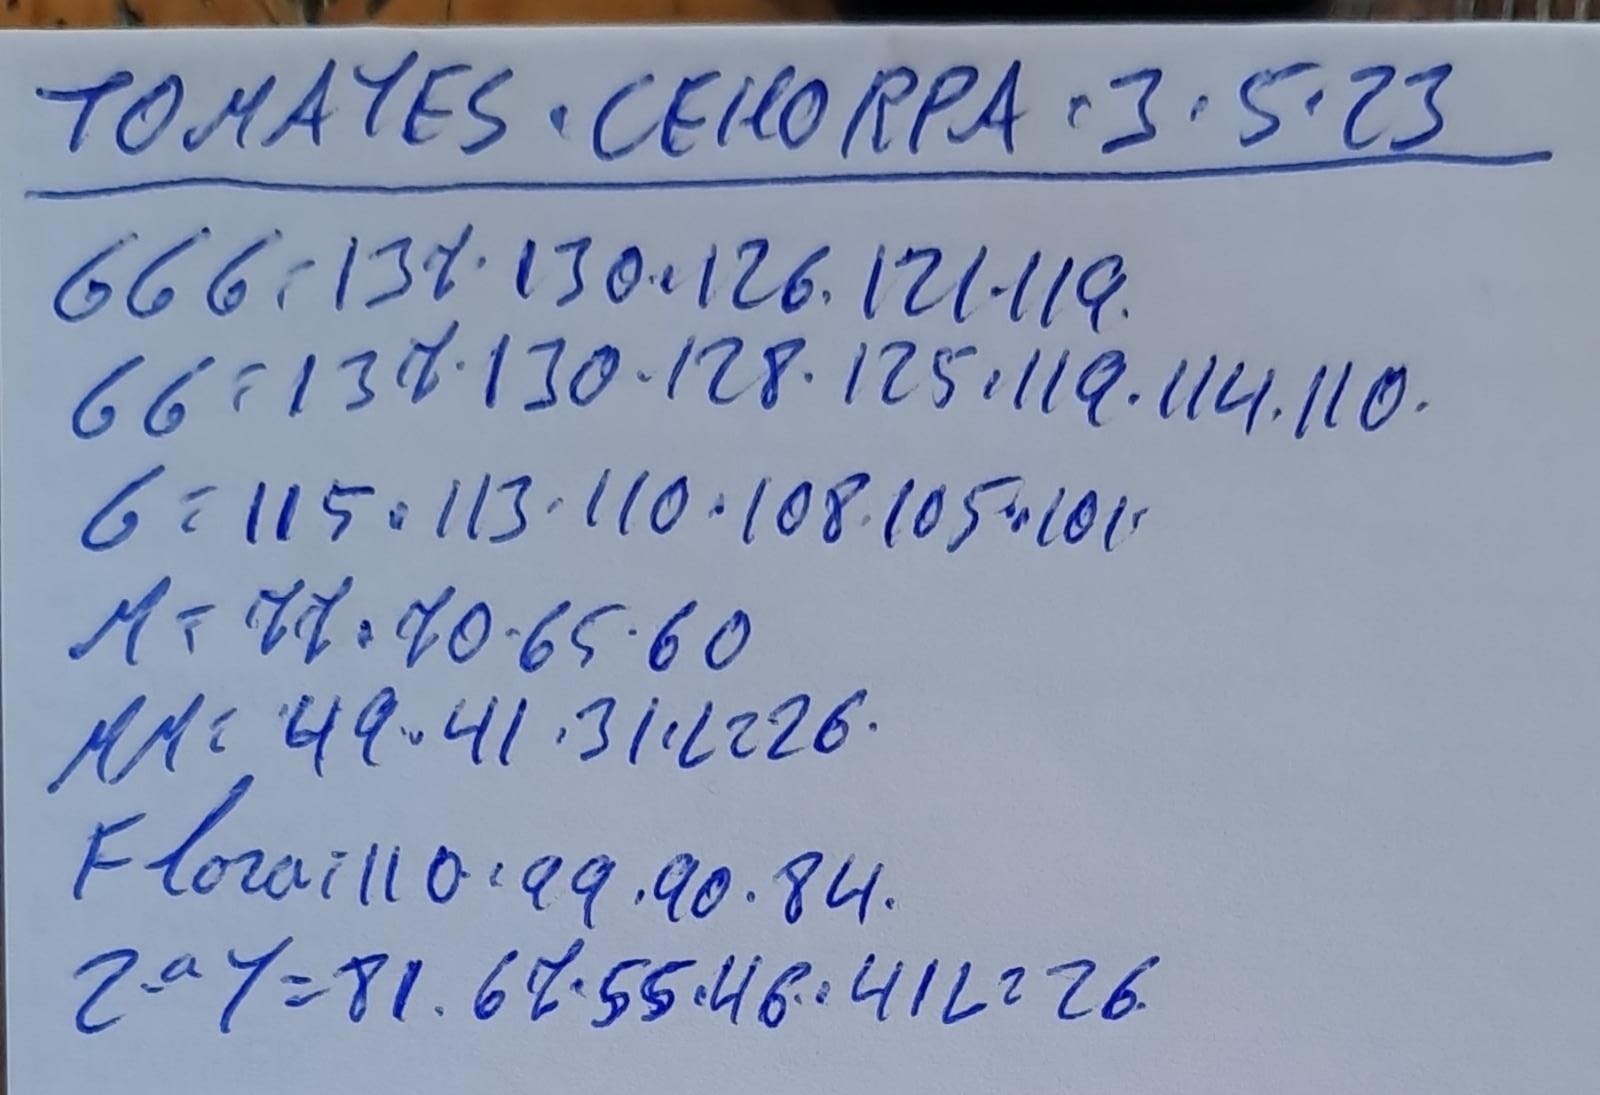 TOMATES · CEHORPA · 3 · 5 · 23
GGG = 137 · 130 · 126 · 121 · 119.
GG = 137 · 130 · 128 · 125 · 119 · 114 · 110.
G = 115 · 113 · 110 · 108 · 105 · 101 ·
M = 77 · 70 · 65 · 60
MM = 49 · 41 · 31 · L = 26.
Flora = 110 · 99 · 90 · 84.
2-ª T = 81 · 67 · 55 · 46 · 41 L = 26.